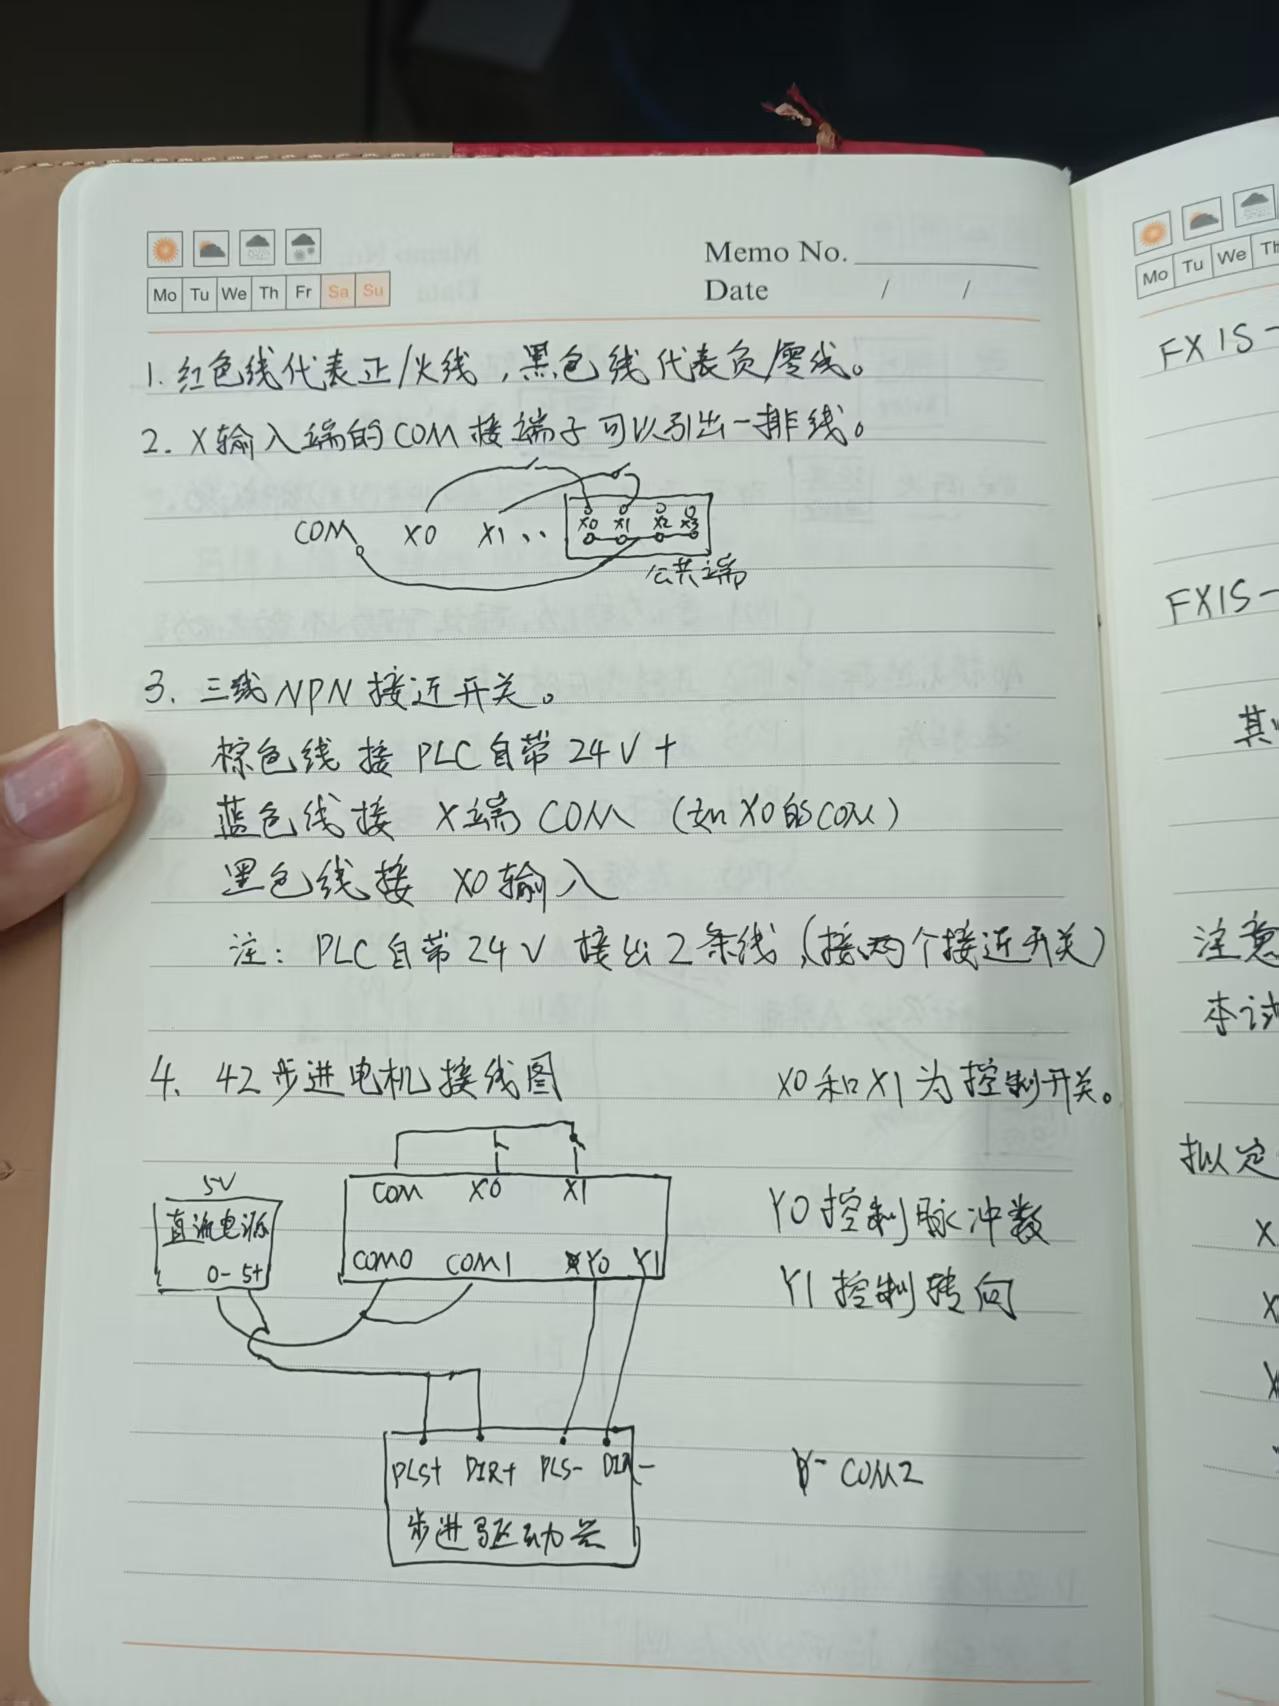 Memo No.
Mo Tu We Th Fr Sa Su
Date / /
1. 红色线代表正/火线，黑色线代表负/零线。
2. X输入端的COM接端子可以引出一排线。
COM X0 X1 ..
X0 X1 X2 X3
公共端
3. 三线NPN接近开关。
棕色线接 PLC自带24V+
蓝色线接 X端COM (如X0的COM)
黑色线接 X0输入
注：PLC自带24V接出2条线，(接两个接近开关)
4. 42步进电机接线图
X0和X1为控制开关。
5V
直流电源
0- 5+
COM X0 X1
COM0 COM1 Y0 Y1
Y0控制脉冲数
Y1控制转向
PLS+ DIR+ PLS- DIR-
步进驱动器
COM2
Mo Tu We Th
FX1S-
FX1S-
其
注意
本试
拟定
X
X
X